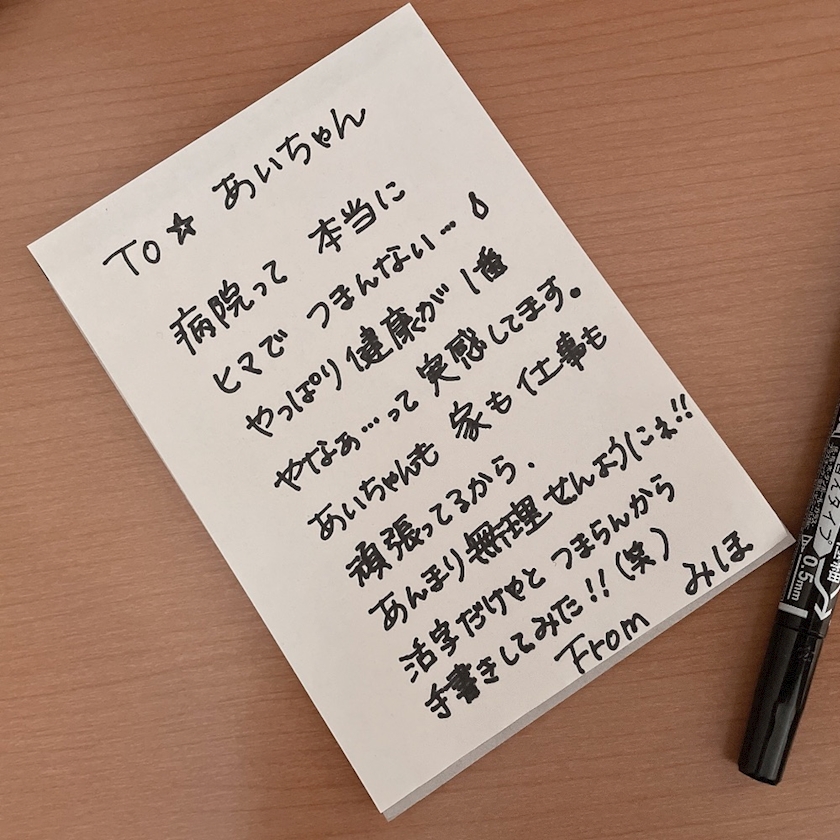 To☆ あいちゃん
病院って 本当に
ヒマで つまんない…
やっぱり 健康が 1番
やなぁ…って 実感してます。
あいちゃんも 家も 仕事も
頑張ってるから、
あんまり 無理せんようにねぇ!!
活字だけやと つまらんから
手書きしてみた!!(笑)
From みほ
0.5mm